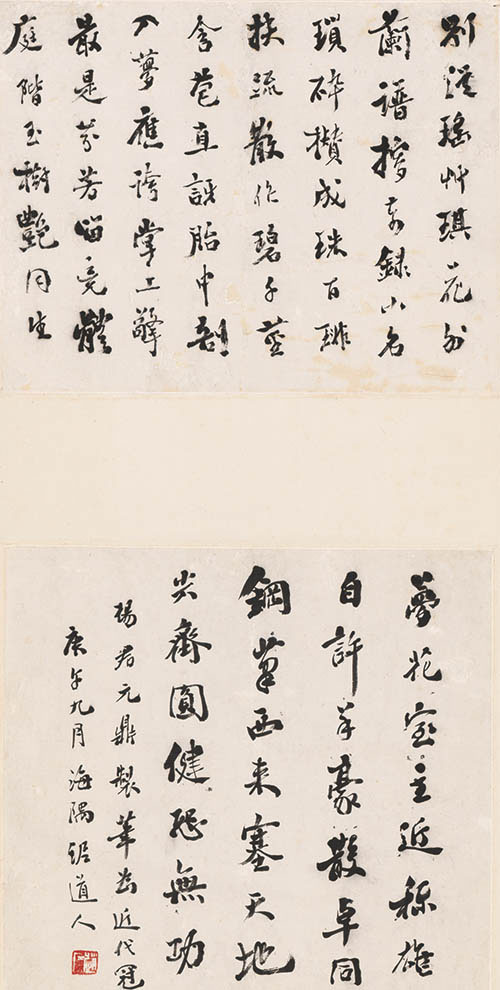 別從瑤艸琪花外
蘭譜錄小名
瑣碎攢成珠百琲
扶疏散作碧千莖
含苞直訝胎中剖
入夢應誇掌上擎
最是芬芳留竟體
庭階玉樹艷同生
夢花室主近稱雄
自許羊豪散卓同
鋼筆西來塞天地
尖齊圓健恐無功
楊君元鼎製筆為近代冠
庚午九月海隅道人